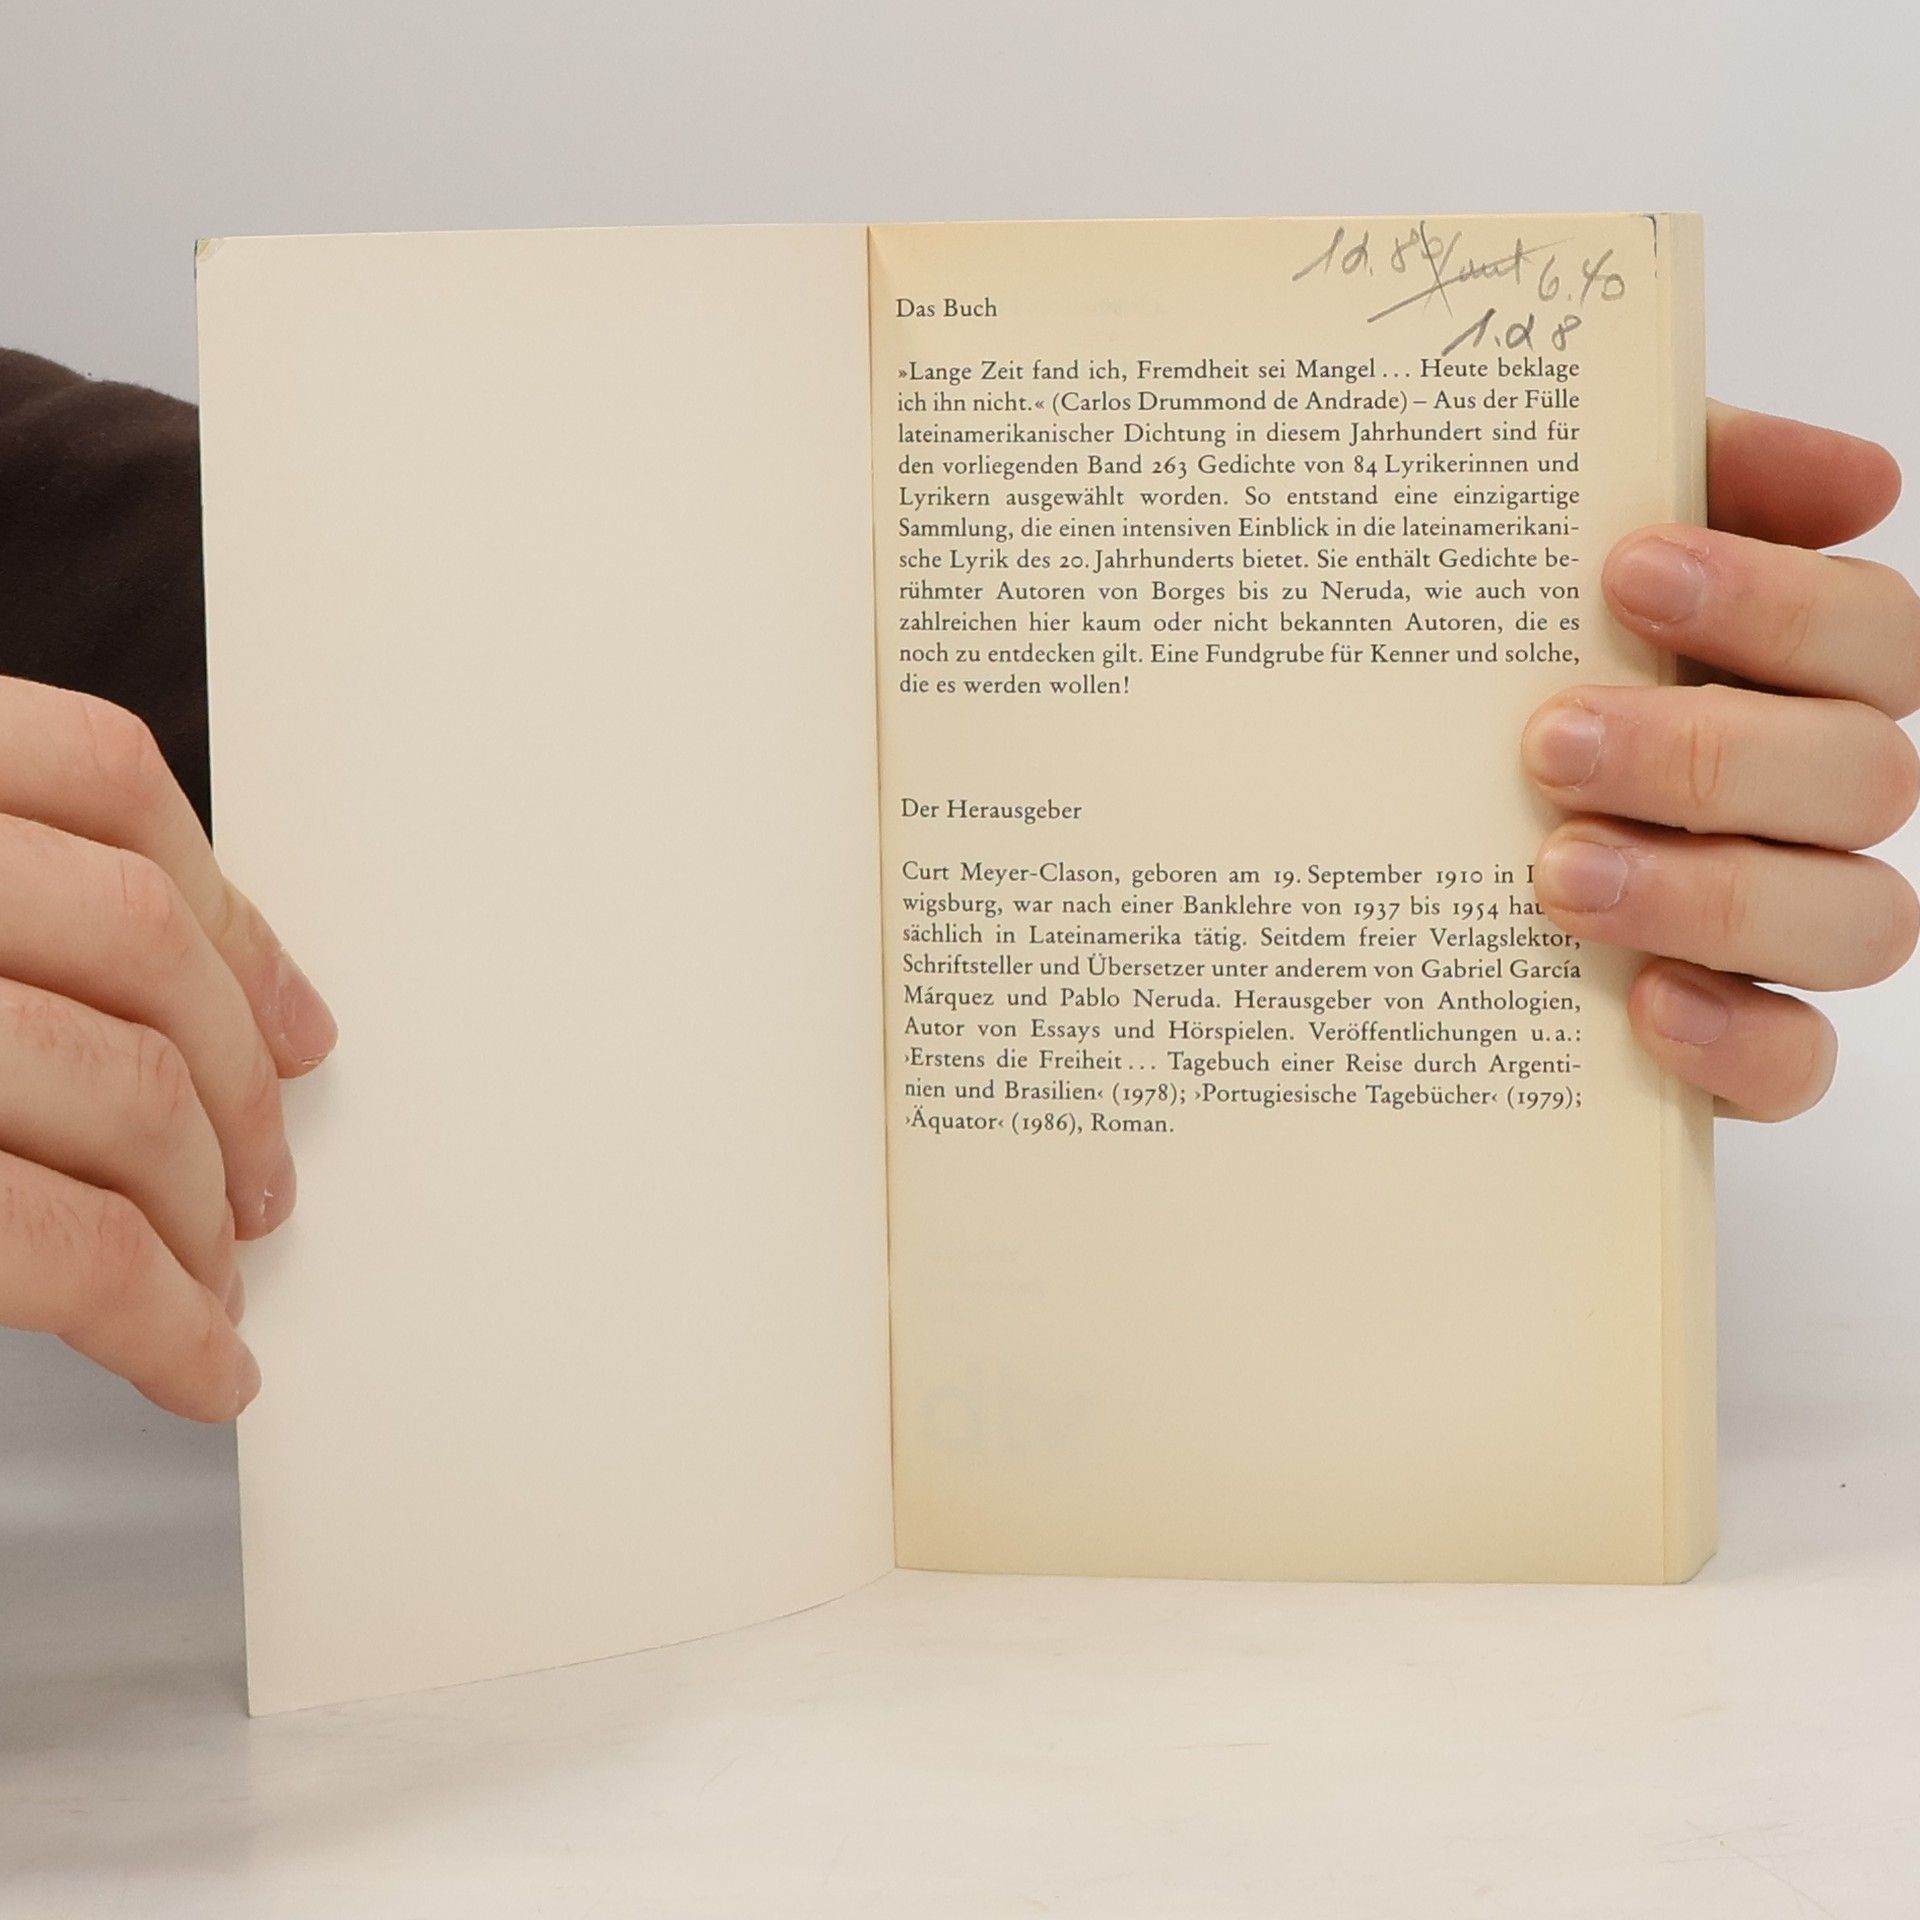 6.40
1.d 8
Das Buch
»Lange Zeit fand ich, Fremdheit sei Mangel ... Heute beklage
ich ihn nicht.« (Carlos Drummond de Andrade) – Aus der Fülle
lateinamerikanischer Dichtung in diesem Jahrhundert sind für
den vorliegenden Band 263 Gedichte von 84 Lyrikerinnen und
Lyrikern ausgewählt worden. So entstand eine einzigartige
Sammlung, die einen intensiven Einblick in die lateinamerikani-
sche Lyrik des 20. Jahrhunderts bietet. Sie enthält Gedichte be-
rühmter Autoren von Borges bis zu Neruda, wie auch von
zahlreichen hier kaum oder nicht bekannten Autoren, die es
noch zu entdecken gilt. Eine Fundgrube für Kenner und solche,
die es werden wollen!
Der Herausgeber
Curt Meyer-Clason, geboren am 19. September 1910 in
wigsburg, war nach einer Banklehre von 1937 bis 1954
sächlich in Lateinamerika tätig. Seitdem freier Verlagslektor,
Schriftsteller und Übersetzer unter anderem von Gabriel García
Márquez und Pablo Neruda. Herausgeber von Anthologien,
Autor von Essays und Hörspielen. Veröffentlichungen u. a.:
›Erstens die Freiheit ... Tagebuch einer Reise durch Argenti-
nien und Brasilien‹ (1978); ›Portugiesische Tagebücher‹ (1979);
›Äquator‹ (1986), Roman.